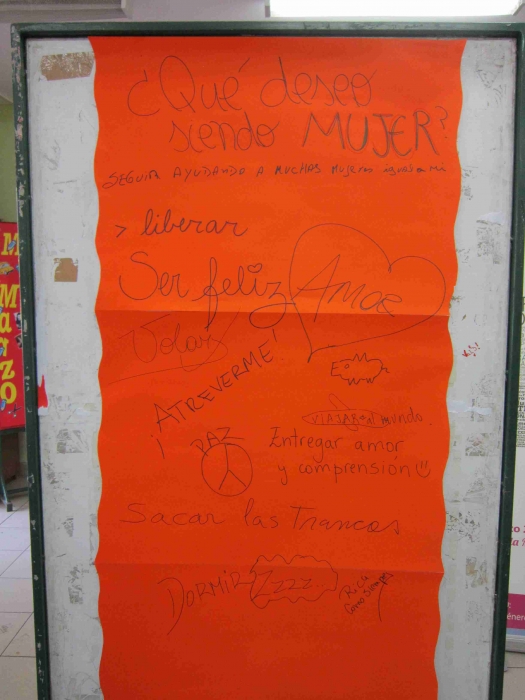 ¿Qué deseo
siendo MUJER?
SEGUIR AYUDANDO A MUCHAS MUJERES igual a mi
> liberar
Ser feliz
AMOR
Volar
¡ATREVERME!
VIAJAR al mundo.
PAZ
Entregar amor
y comprensión
Sacar las Trancas
DORMIR Zzzz...
Rica
como siempre
M
Marzo